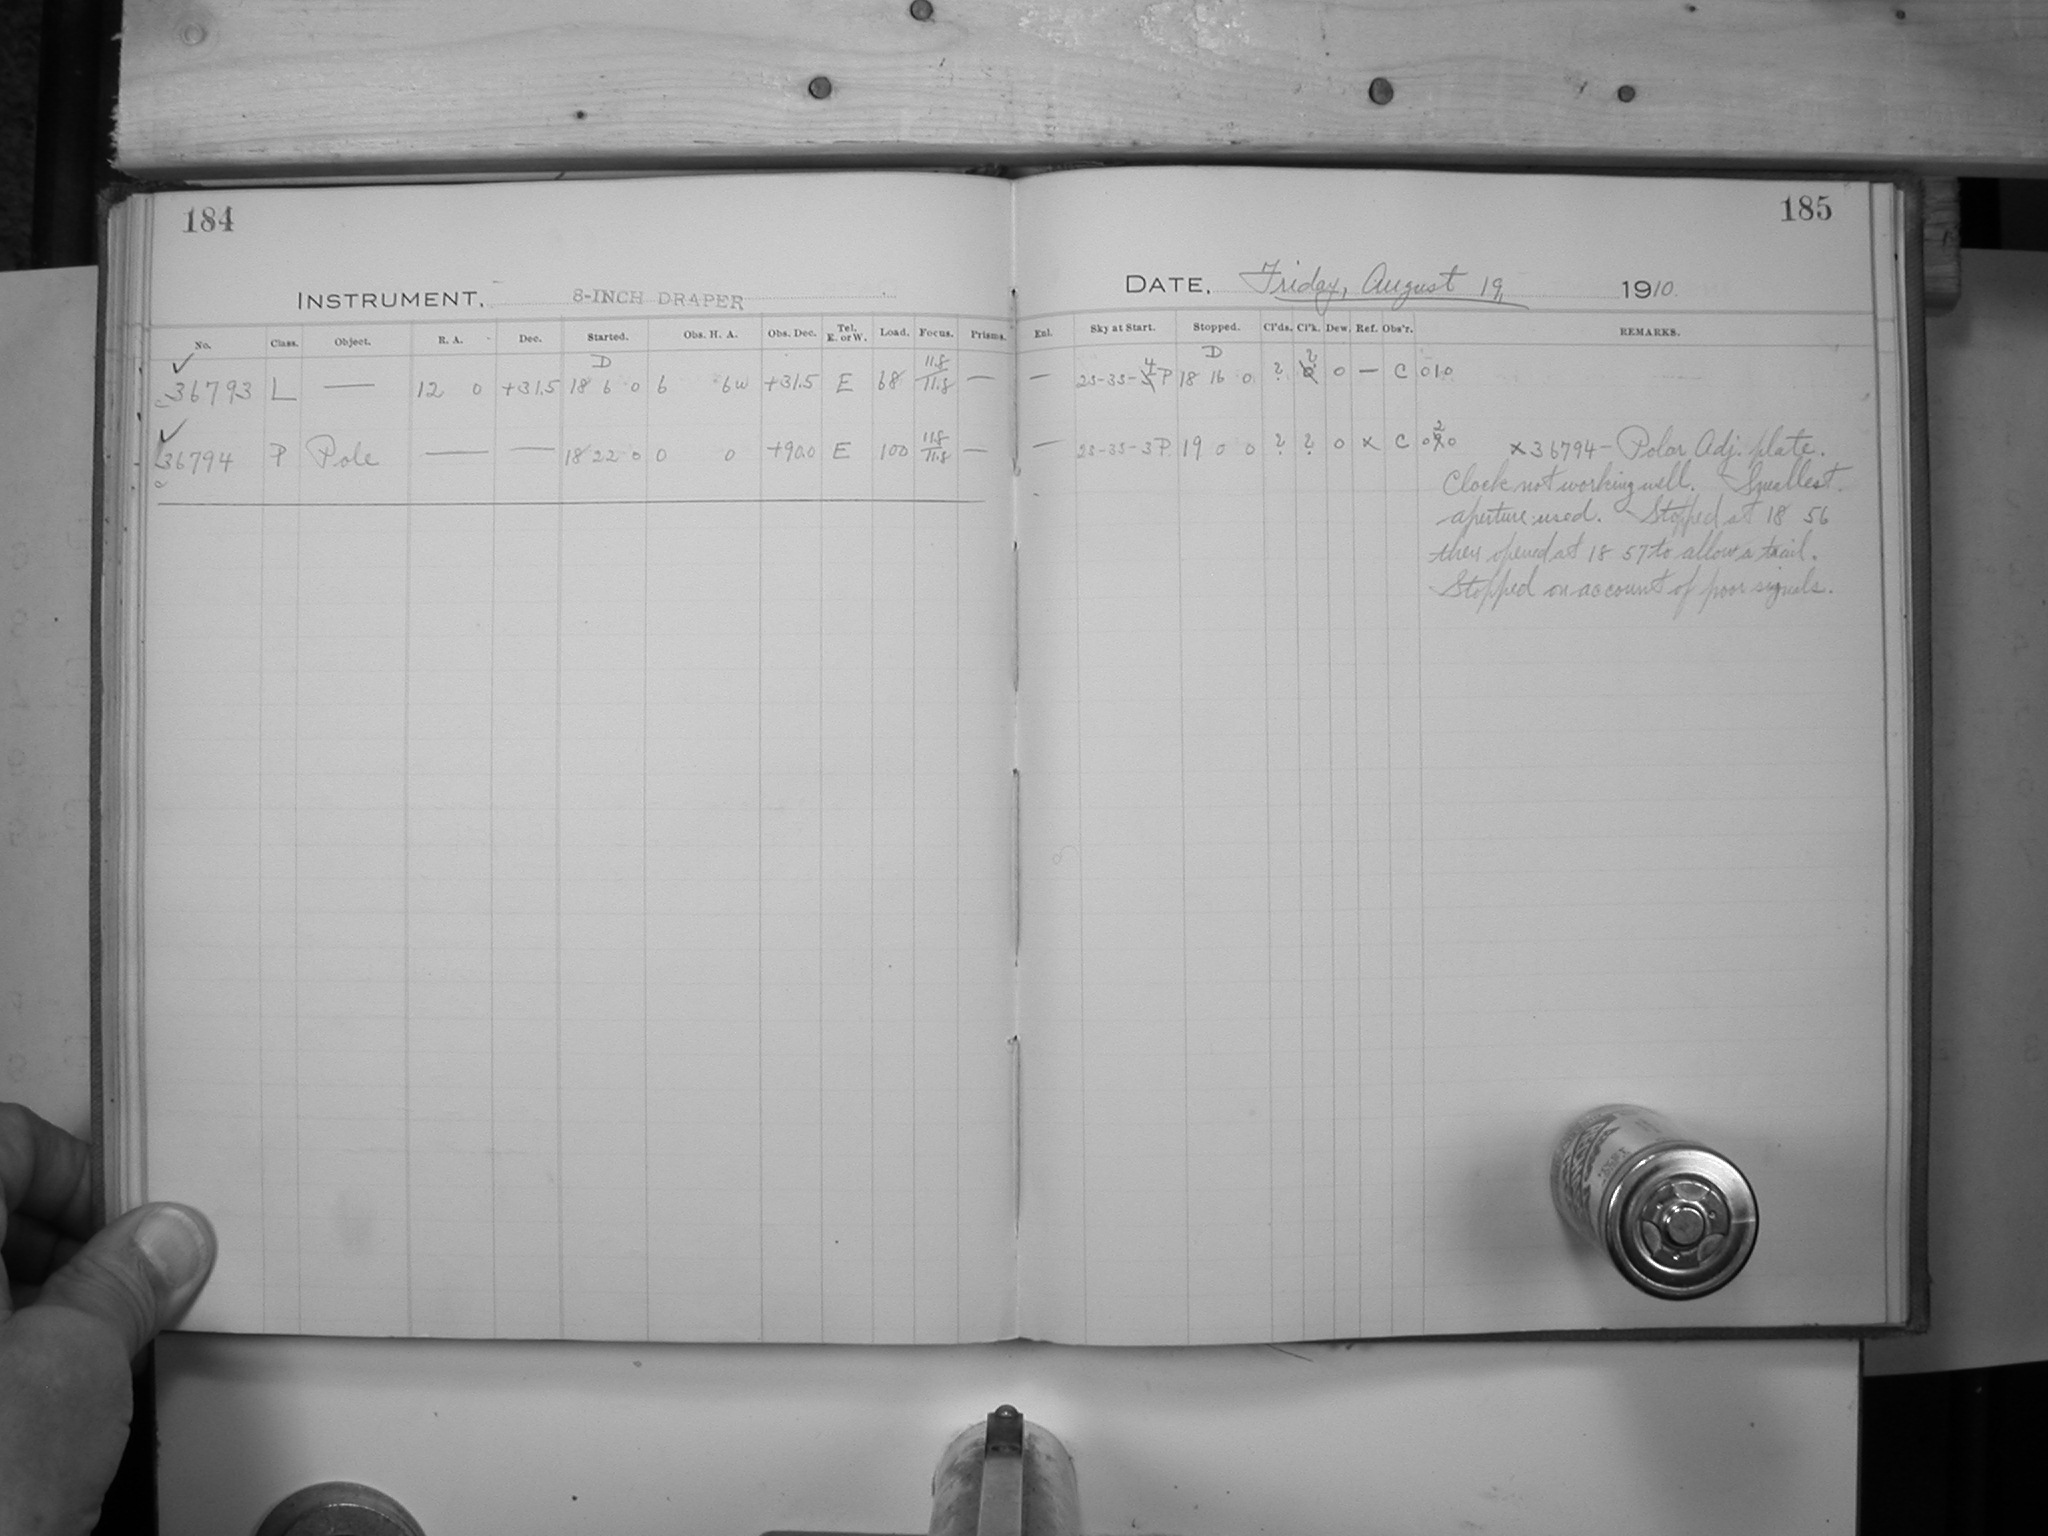 184
185
INSTRUMENT, 8-INCH DRAPER
DATE, Friday, August 19, 1910
No. Class. Object. R. A. Dec. Started. Obs. H. A. Obs. Dec. Tel. E. or W. Load. Focus. Prisms. Enl. Sky at Start. Stopped. Cl'ds. Cl'k. Dew. Ref. Obs'r. REMARKS.
36793 L — 12 0 +31.5 D 18 6 0 6 6w +31.5 E 68 11.8/11.8 — — 2S-3S-4P D 18 16 0 ? ? 0 — C 010
36794 P Pole — — 18 22 0 0 0 +90.0 E 100 11.8/11.8 — — 2S-3S-3P 19 0 0 ? ? 0 x C 020 x36794 - Polar Adj. plate.
Clock not working well. Smallest
aperture used. Stopped at 18 56
then opened at 18 57 to allow a trail.
Stopped on account of poor signals.